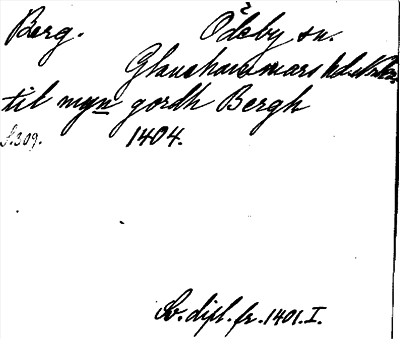 Berg. Ödeby sn.
Glanshammars hd
til myn gordh Bergh
S. 309. 1404.
Sv. dipl. fr. 1401. I.